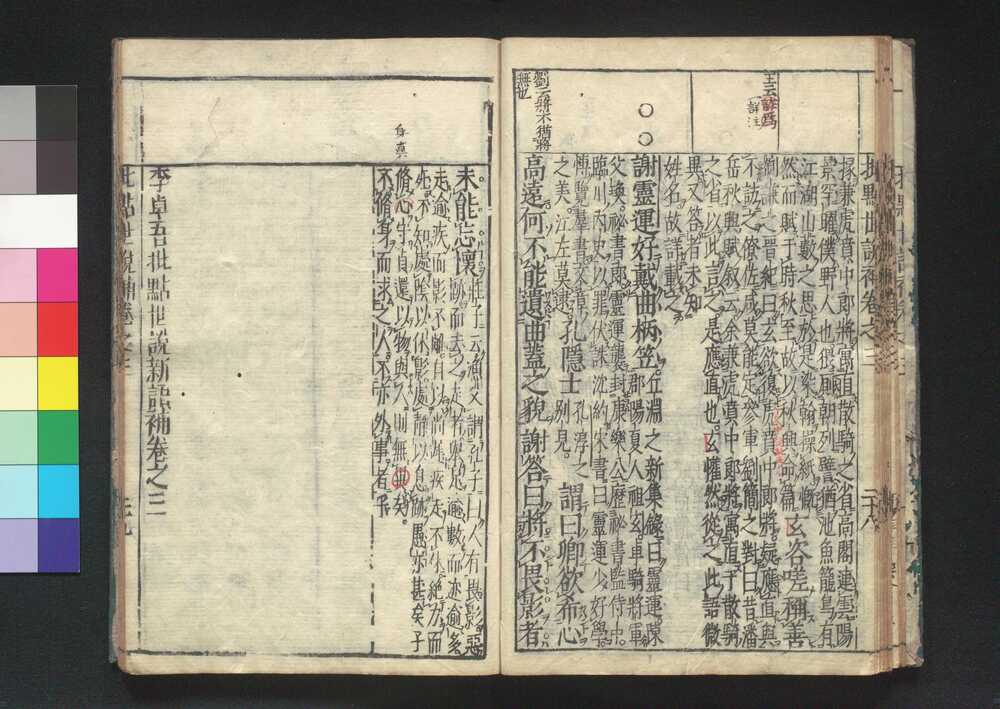 批點世說補卷之三
掾兼虎賁中郎將寓直散騎之省高閣連雲陽
景罕曜僕野人也猥廁朝列譬猶池魚籠鳥有
江湖山藪之思於是染翰操紙慨
然而賦于時秋至故以秋興命篇
玄咨嗟稱善
劉謙之晉紀曰玄欲復虎賁中郎將疑應直與
不訪之僚佐咸莫能定參軍劉簡之對曰昔潘
岳秋興賦叙云余兼虎賁中郎將寓直于散騎
之省以此言之是應直也玄懽然從之此語微
異又答者未知
姓名故詳載之
謝靈運好戴曲柄笠
丘淵之新集錄曰靈運陳
郡陽夏人祖玄車騎將軍
父渙秘書郎靈運襲封康樂公歷祕書監侍中
臨川內史以罪伏誅沈約宋書曰靈運少好學
博覽羣書文章
之美江左莫逮
孔隱士
孔淳之
別見
謂曰卿欲希心
高遠何不能遺曲蓋之貌謝答曰將不畏影者
劉云將不猶將
無也
未能忘懷
莊子云漁父謂孔子曰人有畏影惡
跡而去之走者舉足逾數而迹逾多
走逾疾而影不離自以尚遲疾走不休絕力而
死不知處陰以休影處靜以息跡愚亦甚矣子
脩心守真還以物與人則無異矣
不脩身而求之人不亦外事者乎
身真
李卓吾批點世說新語補卷之三